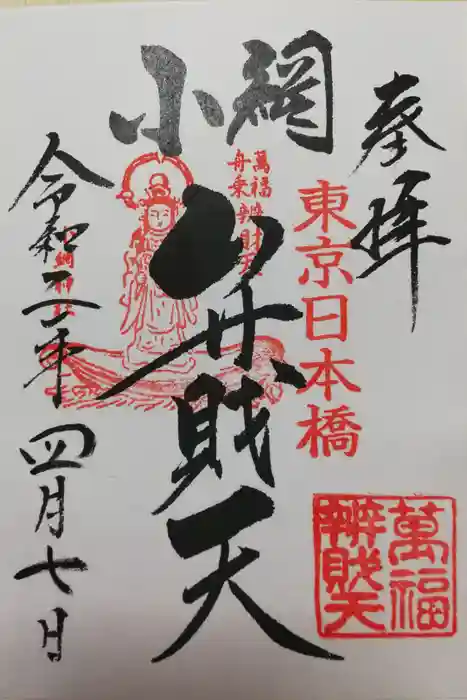 奉拝
東京日本橋
萬福
舟乗辨財天
小網
弁財天
令和二年
四月七日
萬福
辨財天